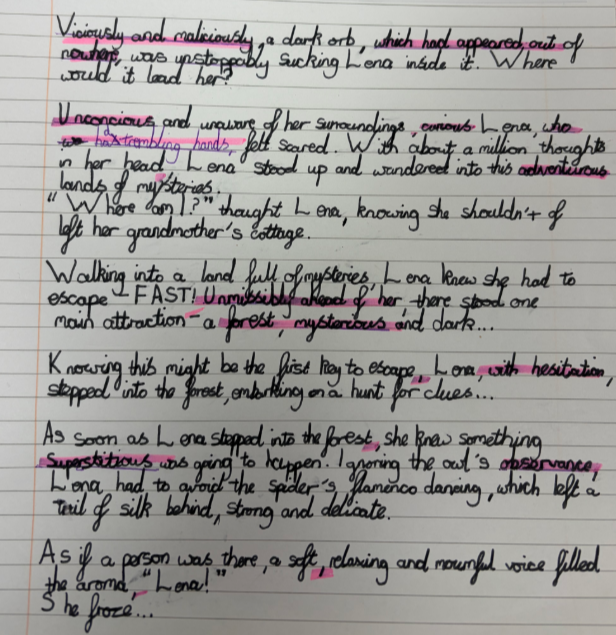 Viciously and maliciously, a dark orb, which had appeared out of
nowhere, was unstoppably sucking Lena inside it. Where
would it lead her?
Unconcious and unaware of her surroundings, curious Lena, who
has trembling hands, felt scared. With about a million thoughts
in her head, Lena stood up and wandered into this adventurous
lands of mysteries.
"Where am I?" thought Lena, knowing she shouldn't of
left her grandmother's cottage.
Walking into a land full of mysteries, Lena knew she had to
escape – FAST! Unmissibly ahead of her, there stood one
main attraction – a forest, mysterious and dark...
Knowing this might be the first key to escape, Lena, with hesitation,
stepped into the forest, embarking on a hunt for clues...
As soon as Lena stepped into the forest, she knew something
Superstitious was going to happen. Ignoring the owl's observance,
Lena had to avoid the spider's flamenco dancing, which left a
trail of silk behind, strong and delicate.
As if a person was there, a soft, relaxing and mournful voice filled
the aroma, "Lena!"
She froze...